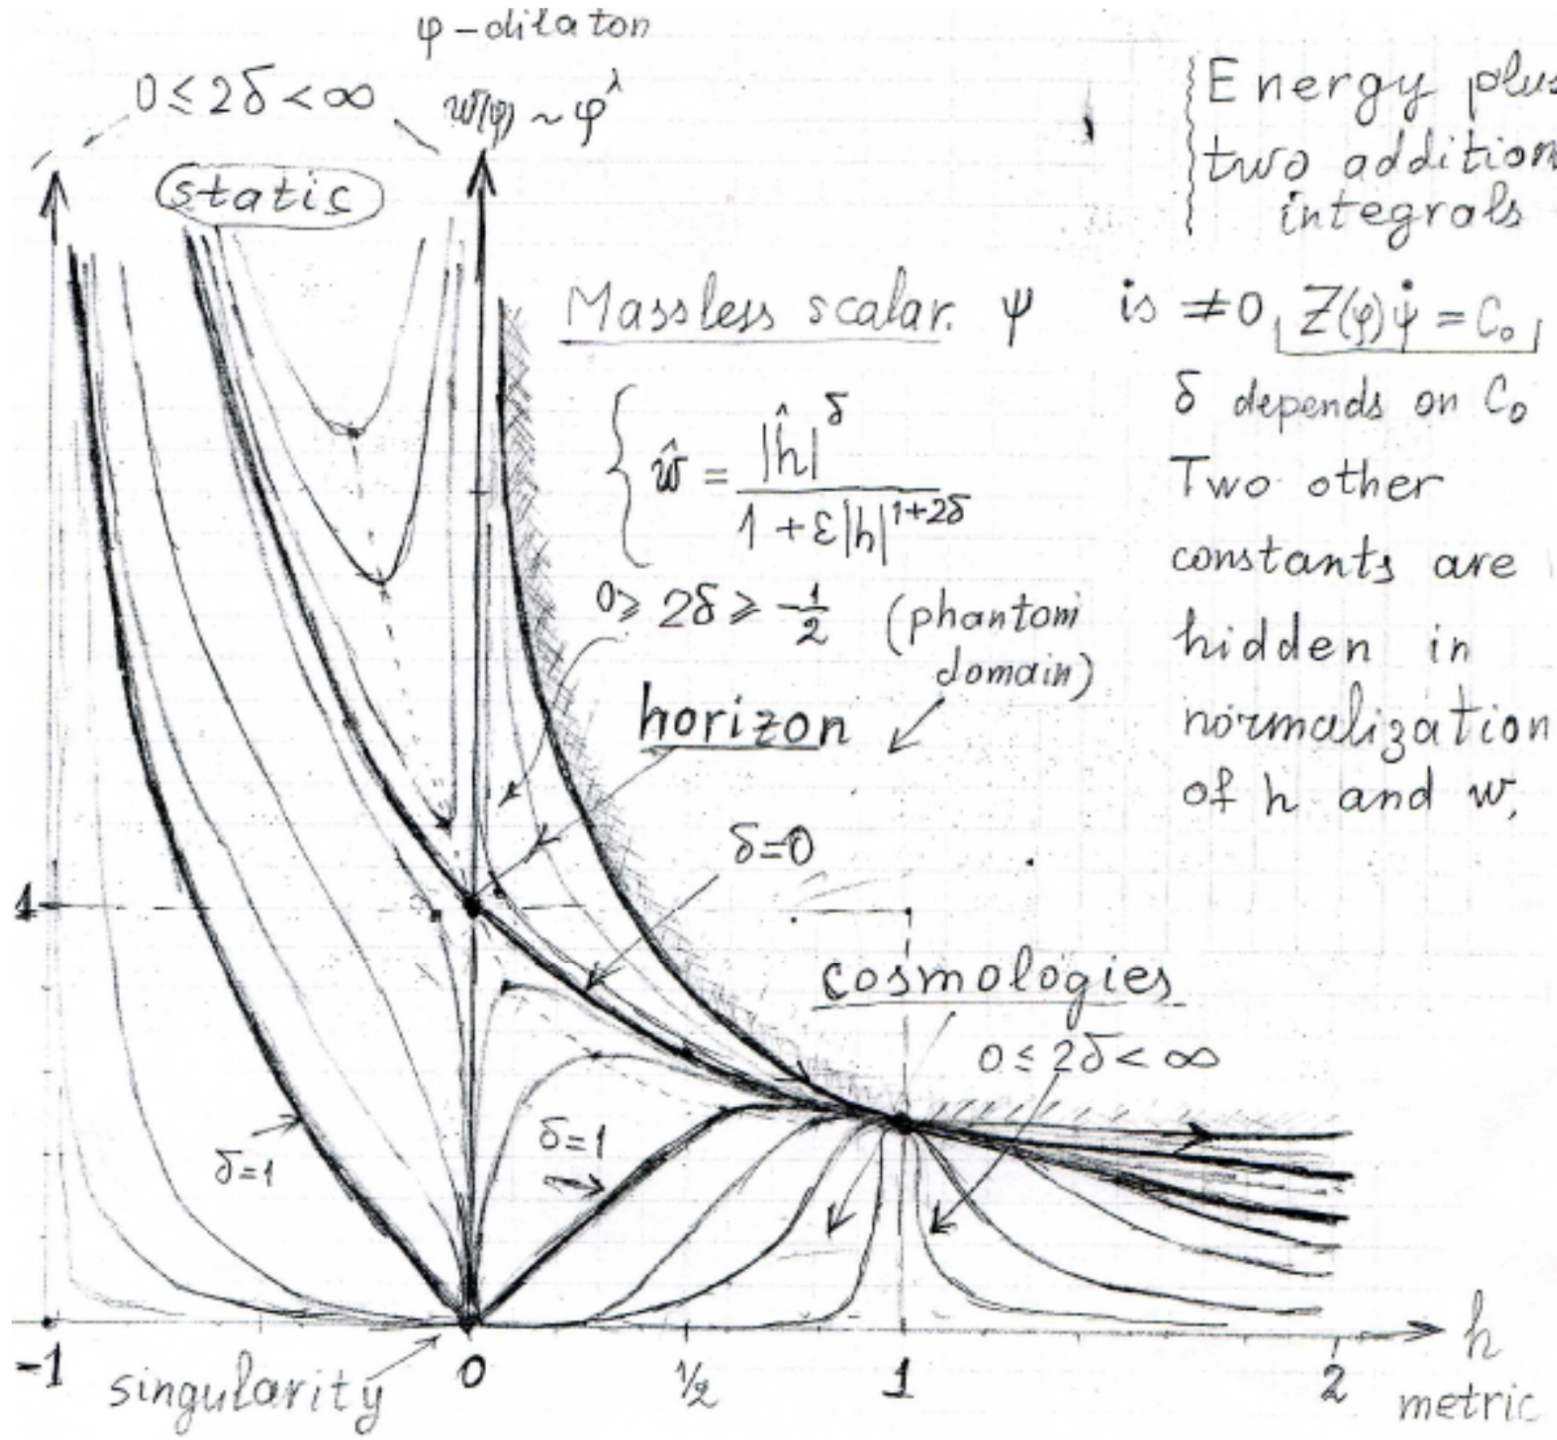 φ-dilaton
0 ≤ 2δ < ∞
w(φ) ~ φ^λ
static
Energy plus
two addition
integrals
Massless scalar. ψ is ≠0, Z(φ)ψ̇ = C₀
δ depends on C₀
Two other
constants are
hidden in
normalization
of h and w,
ŵ = |ĥ|^δ / (1 + ε|h|^(1+2δ))
0 ≥ 2δ ≥ -1/2 (phantom
domain)
horizon
δ=0
1
cosmologies
0 ≤ 2δ < ∞
δ=1
δ=1
h
-1 0 1/2 1 2
singularity
metric